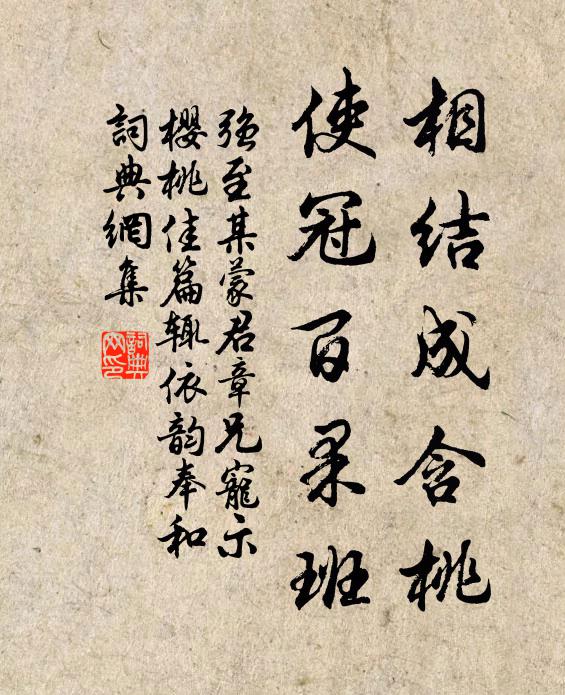 相结成含桃
使冠百果班
强至某蒙君章兄寵示
樱桃佳篇辄依韵奉和
詞典網集
詞典網印